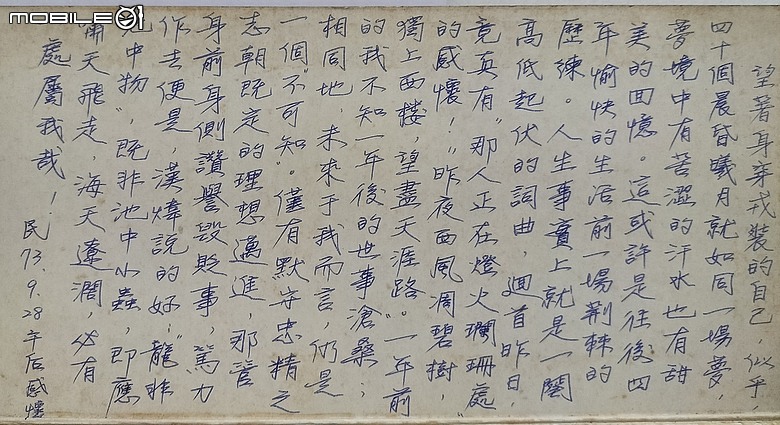 MOBILE01
望著身穿戎裝的自己,似乎,
四十個晨昏曦月就如同一場夢,
夢境中有苦澀的汗水也有甜
美的回憶。這或許是往後四
年愉快的生活前一場荊棘的
歷練。人生事實上就是一闋
高低起伏的詞曲,迴首昨日,
竟真有"那人正在燈火斕珊處"
的感懷!"昨夜西風凋碧樹,
獨上西樓,望盡天涯路"。一年前
的我不知一年後的世事滄桑;
相同地,未來于我而言,仍是
一個"不可知"。僅有默守忠精之
志朝既定的理想邁進,那管
身前身側讚譽毀貶事,篤力
作去便是,漢煒說的好:"龍非
池中物",既非池中小蟲,即應
嘯天飛走,海天遼濶,必有
處屬我哉!
民73.9.28午后感懷